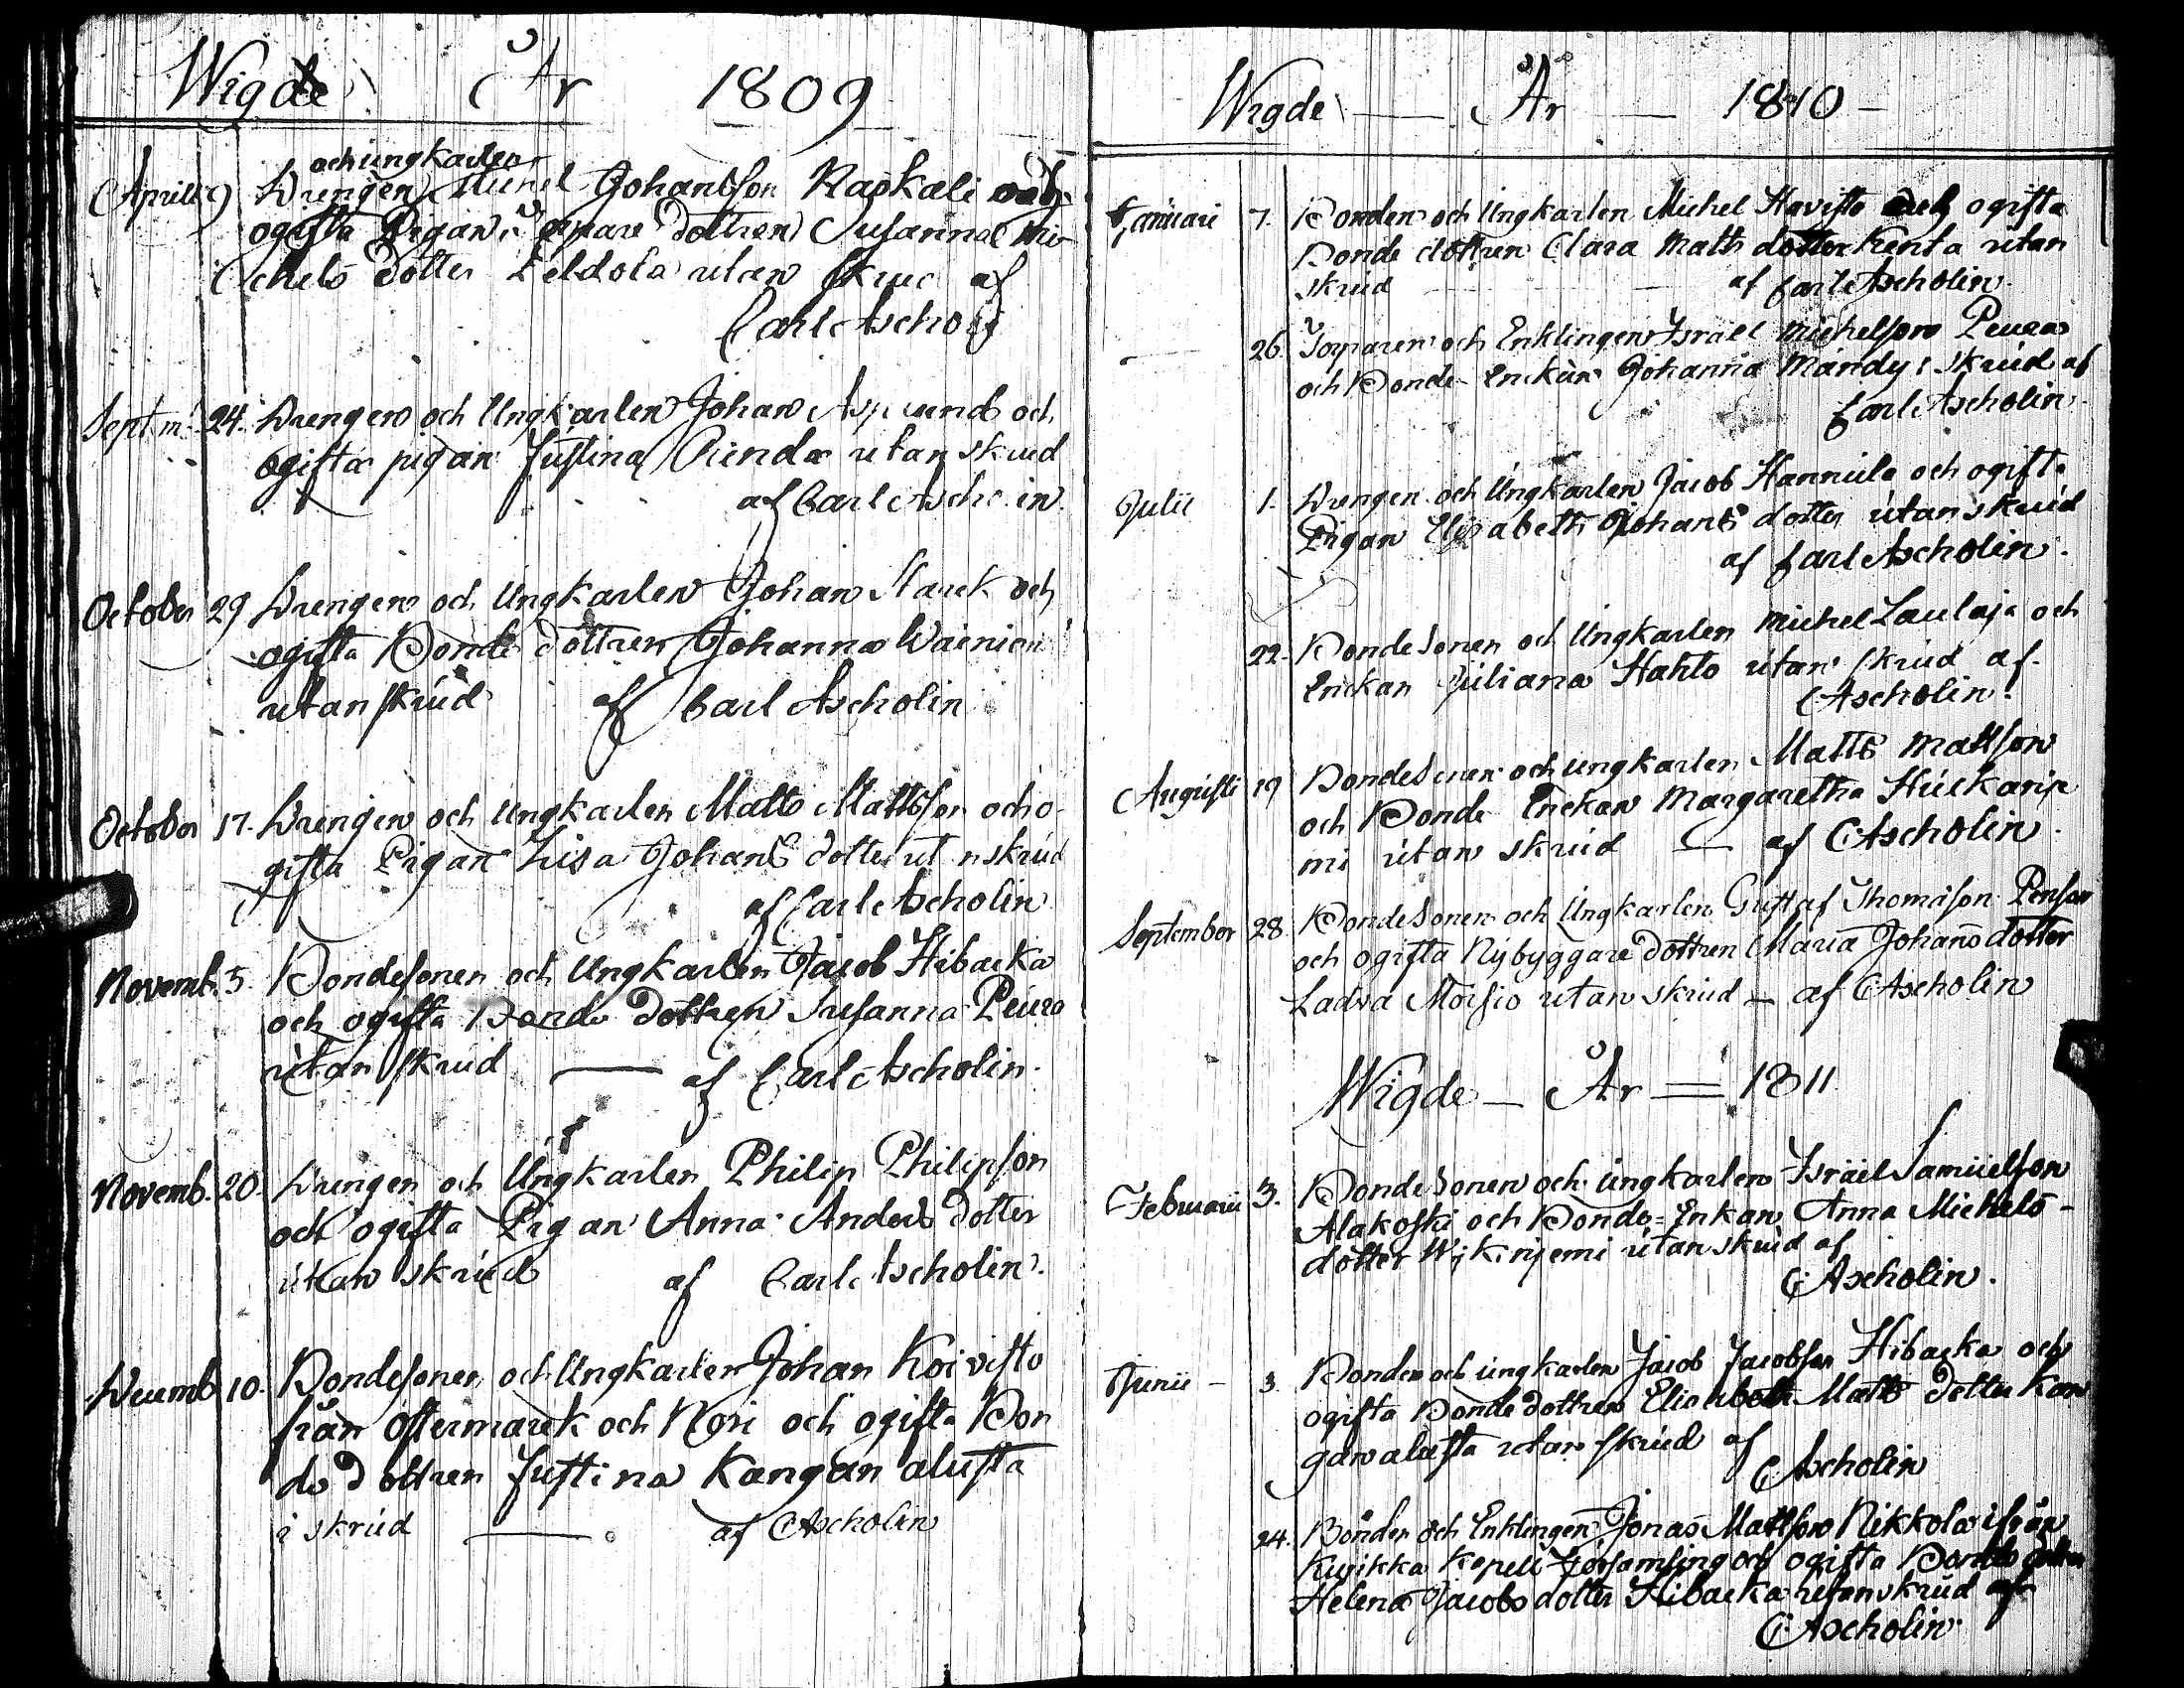 Wigde År 1809
och ungkarlen
Aprill 9 Drengen Michel Johansson Raskali och
ogifta Pigan Torpare dottren Susanna Mi-
chels dotter Peldola utan skrud af
Carl Ascholin
Septm: 24. Drengen och Ungkarlen Johan Asplund och
ogifta pigan Justina Rinda utan skrud
af Carl Ascholin
October 29 Drengen och Ungkarlen Johan Starck och
ogifta Bonde dottren Johanna Wainion
utan skrud af Carl Ascholin
October 17. Drengen och Ungkarlen Matts Mattsson och o-
gifta Pigan Lisa Johans dotter utan skrud
af Carl Ascholin
Novemb. 5. Bondesonen och Ungkarlen Jacob Hibacka
och ogifta Bonde dottren Susanna Peura
utan skrud — af Carl Ascholin.
Novemb. 20. Drengen och Ungkarlen Philip Philipsson
och ogifta Pigan Anna Anders dotter
utan skrud af Carl Ascholin.
Decemb 10. Bondesonen och Ungkarlen Johan Koivisto
från Östermarck och Nori och ogifta Bon
de dottren Justina Kangan alusta
i skrud — af CAscholin
Wigde — År — 1810 —
Januari 7. Bonden och Ungkarlen Michel Havisto och ogifta
Bonde dottren Clara Matts dotter Kenta utan
skrud af Carl Ascholin.
26. Torparen och Enklingen Israel Michelsson Peura
och Bonde-Enckan Johanna Mandy i skrud af
Carl Ascholin.
Julii 1. Drengen och Ungkarlen Jacob Hannula och ogifta
Pigan Elisabeth Johans dotter utan skrud
af Carl Ascholin.
22. Bondesonen och Ungkarlen Michel Laulaja och
Enckan Juliana Hahto utan skrud af
CAscholin.
Augusti 19 Bondesonen och ungkarlen Matts Mattsson
och Bonde Enckan Margaretha Huckanie
mi utan skrud — af CAscholin.
September 28. Bondesonen och Ungkarlen Gustaf Thomasson Penson
och ogifta Nybyggare dottren Maria Johans dotter
Ladva Moisio utan skrud — af CAscholin
Wigde — År = 1811.
Februarii 3. Bondesonen och ungkarlen Israel Samuelsson
Alakoski och Bonde=Enkan Anna Michels-
dotter Wijkinjemi utan skrud af
CAscholin.
Junii — 3. Bonden och ungkarlen Jacob Jacobsson Hibacka och
ogifta Bonde dottren Elisabeth Matts dotter Kan
gan alusta utan skrud af
CAscholin
24. Bonden och Enklingen Jonas Mattsson Nikkola ifrån
Kurikka Kapell Församling och ogifta Bonde dotter
Helena Jacobs dotter Hibacka utan skrud af
CAscholin